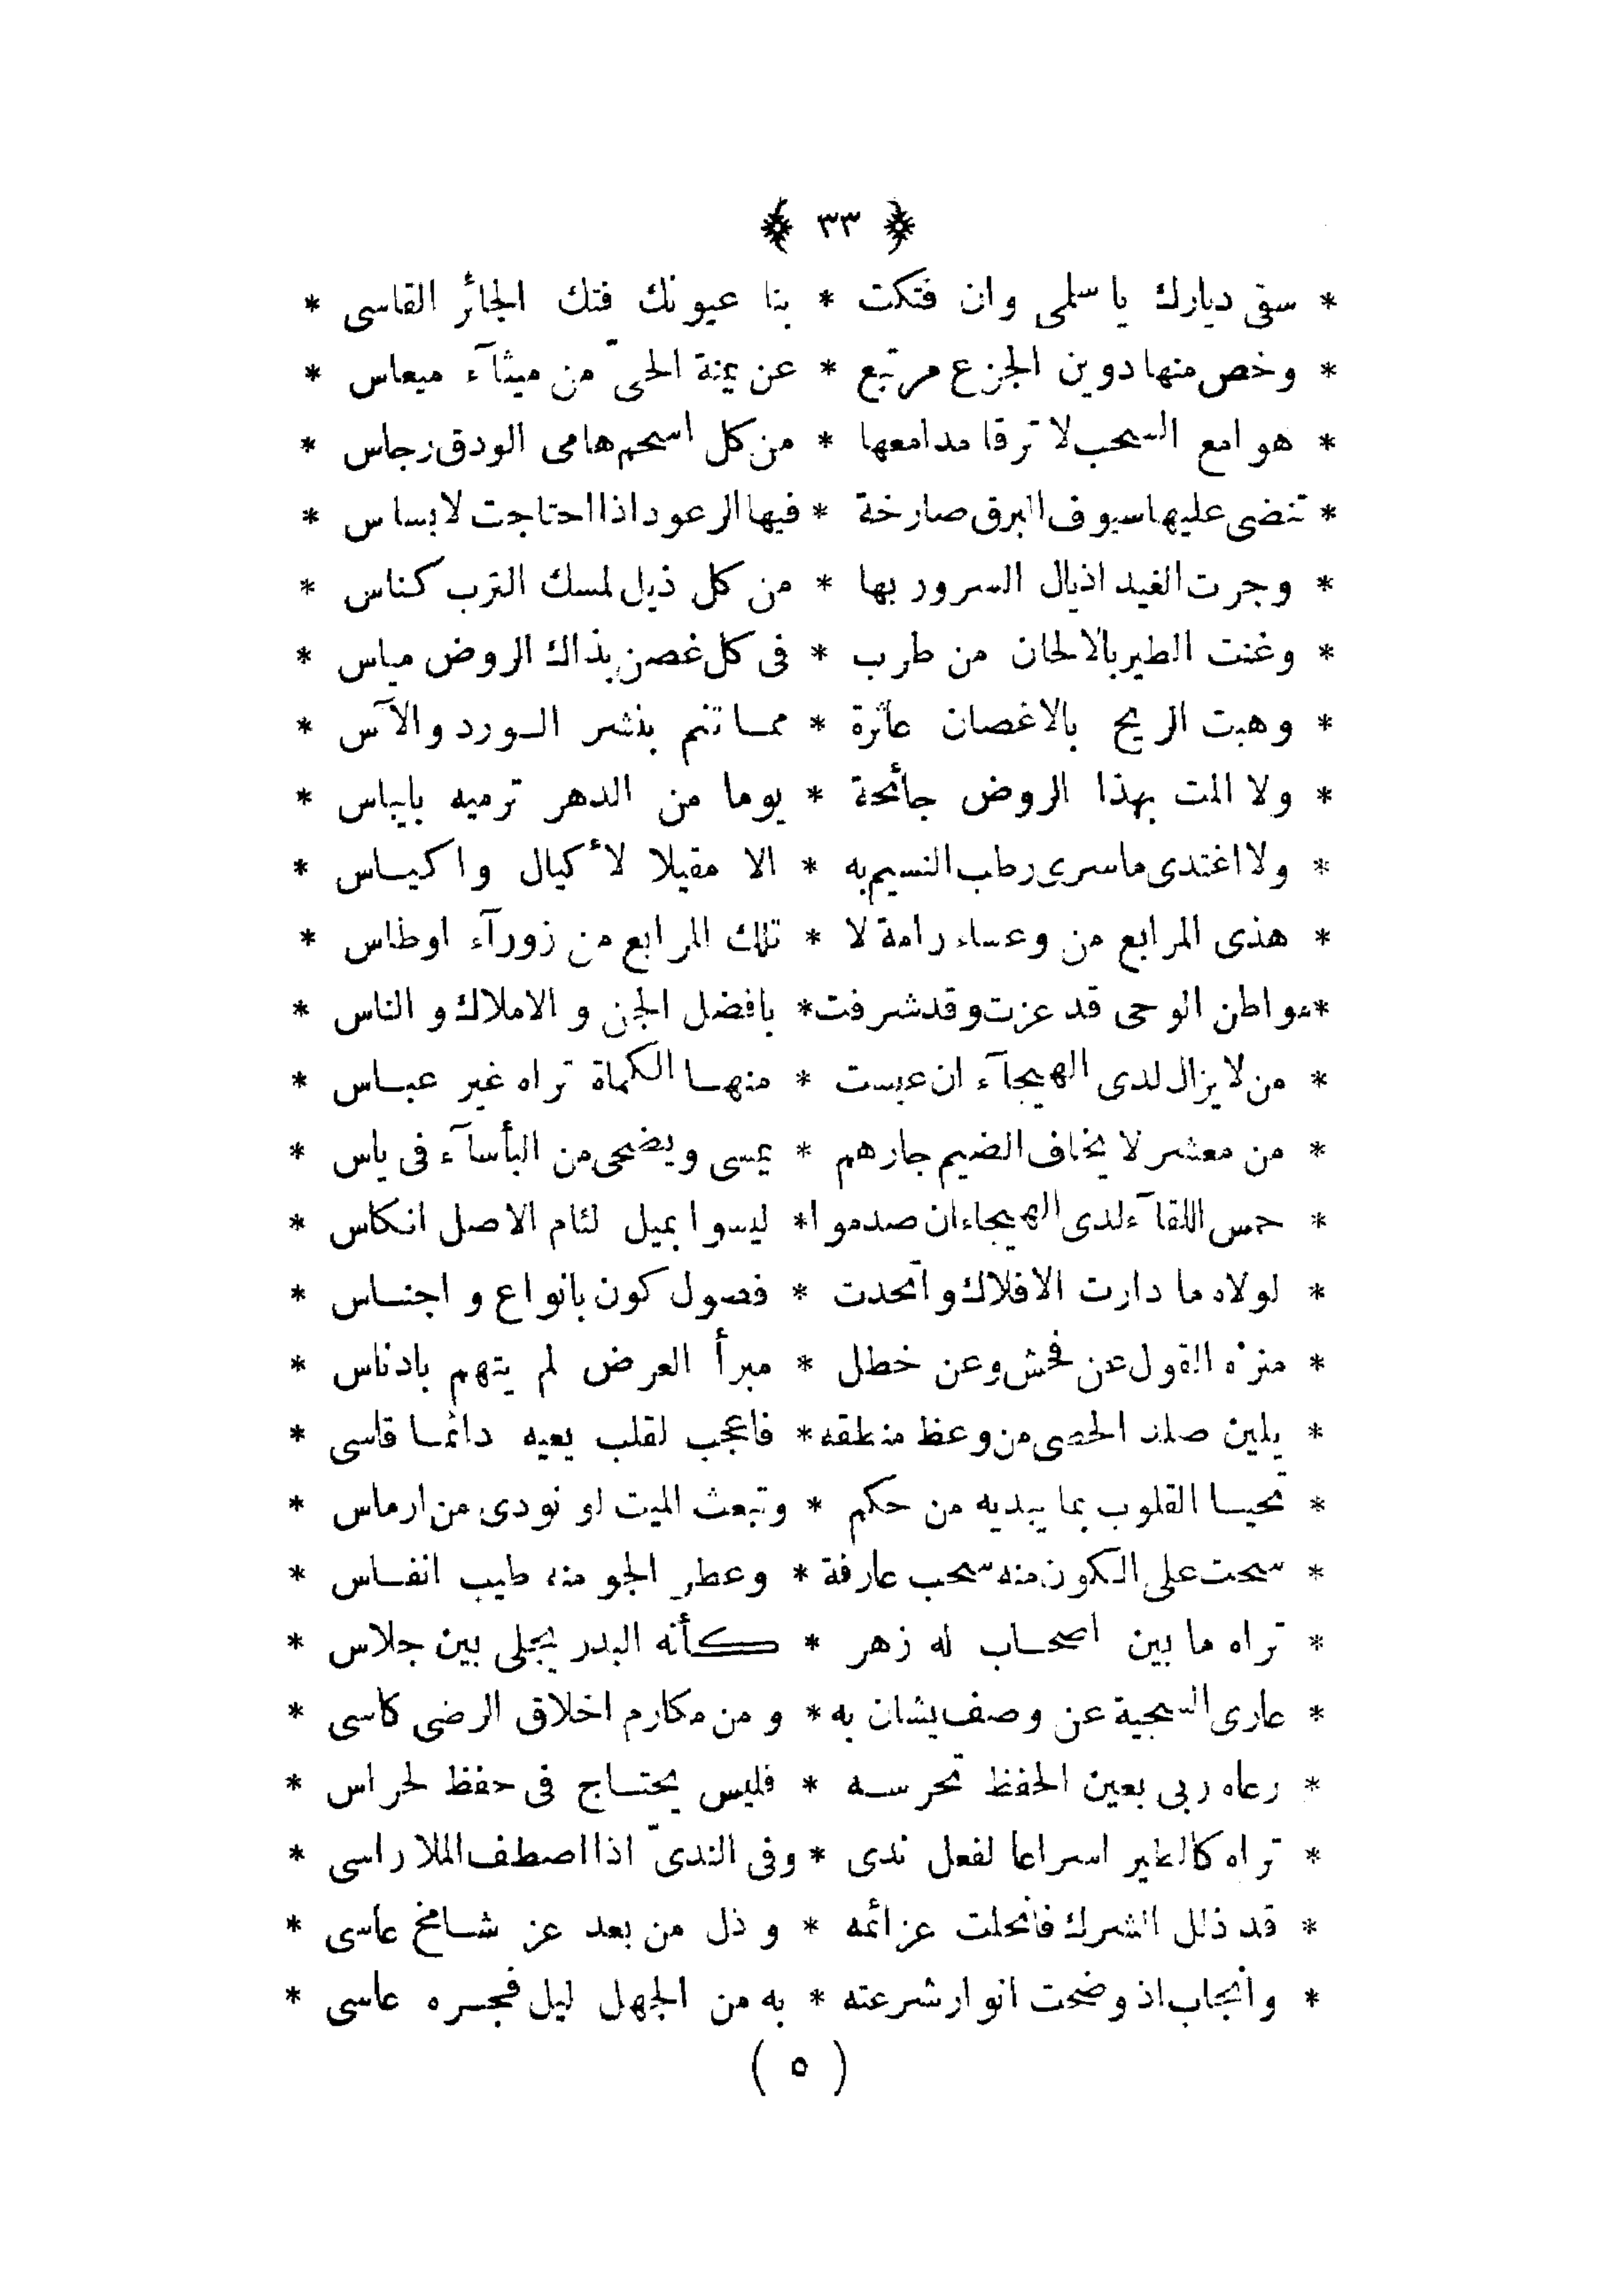 ﴿ ٣٣ ﴾
* سقى ديارك يا سلمى وان فتكت * بنا عيونك فتك الجائر القاسى *
* وخص منها دوين الجزع مرتبع * عن يمنة الحىّ من ميثآء ميعاس *
* هوامع السحب لا ترقا مدامعها * من كل اسحم هامى الودق رجاس *
* تنضى عليها سيوف البرق صارخة * فيها الرعود اذا احتاجت لابساس *
* وجرت الغيد اذيال السرور بها * من كل ذيل لمسك الترب كناس *
* وغنت الطير بالالحان من طرب * فى كل غصن بذاك الروض مياس *
* وهبت الريح بالاغصان عاثرة * ممـا تنم بنشر الـورد والآس *
* ولا المت بهذا الروض جائحة * يوما من الدهر ترميه بايباس *
* ولا اغتدى ما سرى رطب النسيم به * الا مقيلا لأكيال واكيـاس *
* هذى المرابع من وعساء رامة لا * تلك المرابع من زورآء اوطاس *
* مواطن الوحى قد عزت وقد شرفت * بافضل الجن والاملاك والناس *
* من لا يزال لدى الهيجآء ان عبست * منهـا الكماة تراه غير عبـاس *
* من معشر لا يخاف الضيم جارهم * يمسى ويضحى من البأسآء فى ياس *
* حمس اللقآء لدى الهيجاء ان صدموا * ليسوا بميل لئام الاصل انكاس *
* لولاه ما دارت الافلاك واتحدت * فصول كون بانواع واجنـاس *
* منزه القول عن فحش وعن خطل * مبرأ العرض لم يتهم بادناس *
* يلين صلد الحصى من وعظ منطقه * فاعجب لقلب يعيه دائمـا قاسى *
* تحيـا القلوب بما يبديه من حكم * وتبعث الميت لو نودى من ارماس *
* سحت على الكون منه سحب عارفة * وعطر الجو منه طيب انفـاس *
* تراه ما بين اصحـاب له زهر * كأنه البدر يجلى بين جلاس *
* عارى السجية عن وصف يشان به * ومن مكارم اخلاق الرضى كاسى *
* رعاه ربى بعين الحفظ تحرسـه * فليس يحتـاج فى حفظ لحراس *
* تراه كالطير اسراعا لفعل ندى * وفى الندىّ اذا اصطف الملا راسى *
* قد ذلل الشرك فانحلت عزائمه * وذل من بعد عز شـامخ عاسى *
* وانجاب اذ وضحت انوار شرعته * به من الجهل ليل فجـره عاسى *
( ٥ )